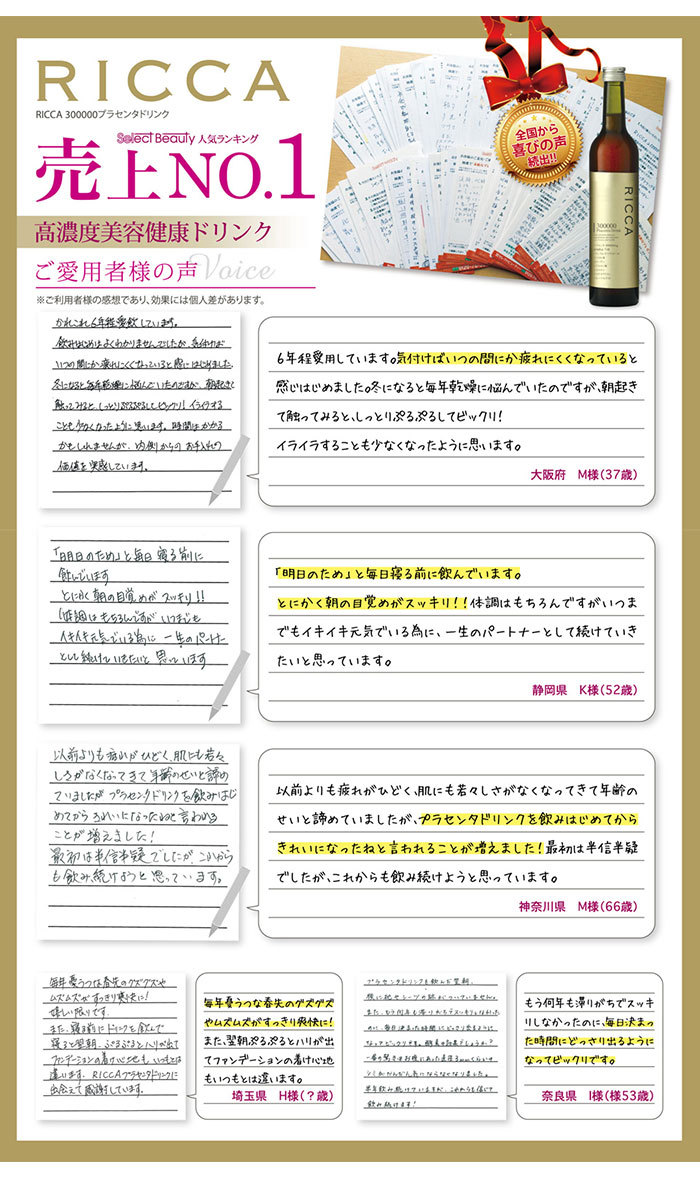 RICCA
RICCA 300000プラセンタドリンク
Select Beauty 人気ランキング
売上NO.1
高濃度美容健康ドリンク
ご愛用者様の声 Voice
※ご利用者様の感想であり、効果には個人差があります。
全国から
喜びの声
続出!!
RICCA
300000
かれこれ6年程愛飲しています。
飲みはじめはよくわかりませんでしたが、気付けば
いつの間にか疲れにくくなっていると感じはじめました。
冬になると毎年乾燥に悩んでいたのですが、朝起きて
触ってみると、しっとりぷるぷるしてビックリ!イライラする
ことも少なくなったように思います。時間はかかる
かもしれませんが、内側からのお手入れの
価値を実感しています。
6年程愛用しています。気付けばいつの間にか疲れにくくなっていると
感じはじめました。冬になると毎年乾燥に悩んでいたのですが、朝起き
て触ってみると、しっとりぷるぷるしてビックリ!
イライラすることも少なくなったように思います。
大阪府 M様(37歳)
「明日のため」と毎日寝る前に
飲んでいます
とにかく朝の目覚めがスッキリ!!
体調はもちろんですがいつまでも
イキイキ元気でいる為に 一生のパートナー
として続けていきたいと思っています
「明日のため」と毎日寝る前に飲んでいます。
とにかく朝の目覚めがスッキリ!!体調はもちろんですがいつま
でもイキイキ元気でいる為に、一生のパートナーとして続けていき
たいと思っています。
静岡県 K様(52歳)
以前よりも疲れがひどく、肌にも若々
しさがなくなってきて年齢のせいと諦め
ていましたが プラセンタドリンクを飲みはじ
めてから きれいになったねと言われる
ことが増えました!
最初は半信半疑でしたが、これから
も飲み続けようと思っています。
以前よりも疲れがひどく、肌にも若々しさがなくなってきて年齢の
せいと諦めていましたが、プラセンタドリンクを飲みはじめてから
きれいになったねと言われることが増えました!最初は半信半疑
でしたが、これからも飲み続けようと思っています。
神奈川県 M様(66歳)
毎年憂うつな春先のグズグズや
ムズムズがすっきり爽快に!
嬉しい限りです。
また、寝る前にドリンクを飲んで
寝ると翌朝、ぷるぷるとハリが出て
ファンデーションの着け心地も、いつもとは
違います。RICCAプラセンタドリンクに
出会えて感謝しています。
毎年憂うつな春先のグズグズ
やムズムズがすっきり爽快に!
また、翌朝ぷるぷるとハリが出
てファンデーションの着け心地
もいつもとは違います。
埼玉県 H様(?歳)
プラセンタドリンクを飲んだ翌朝、
もう何年も滞りがちでスッキ
リしなかったのに、毎日決まっ
た時間にどっさり出るように
なってビックリです。
奈良県 I様(様53歳)